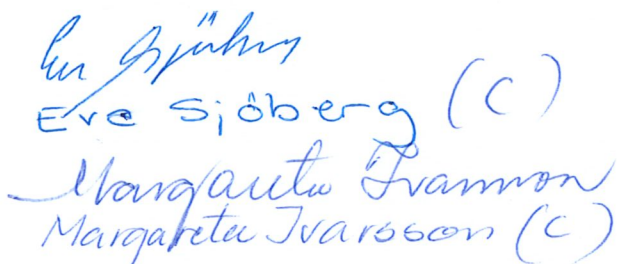 Eva Sjöberg
Eva Sjöberg (C)
Margareta Ivarsson
Margareta Ivarsson (C)